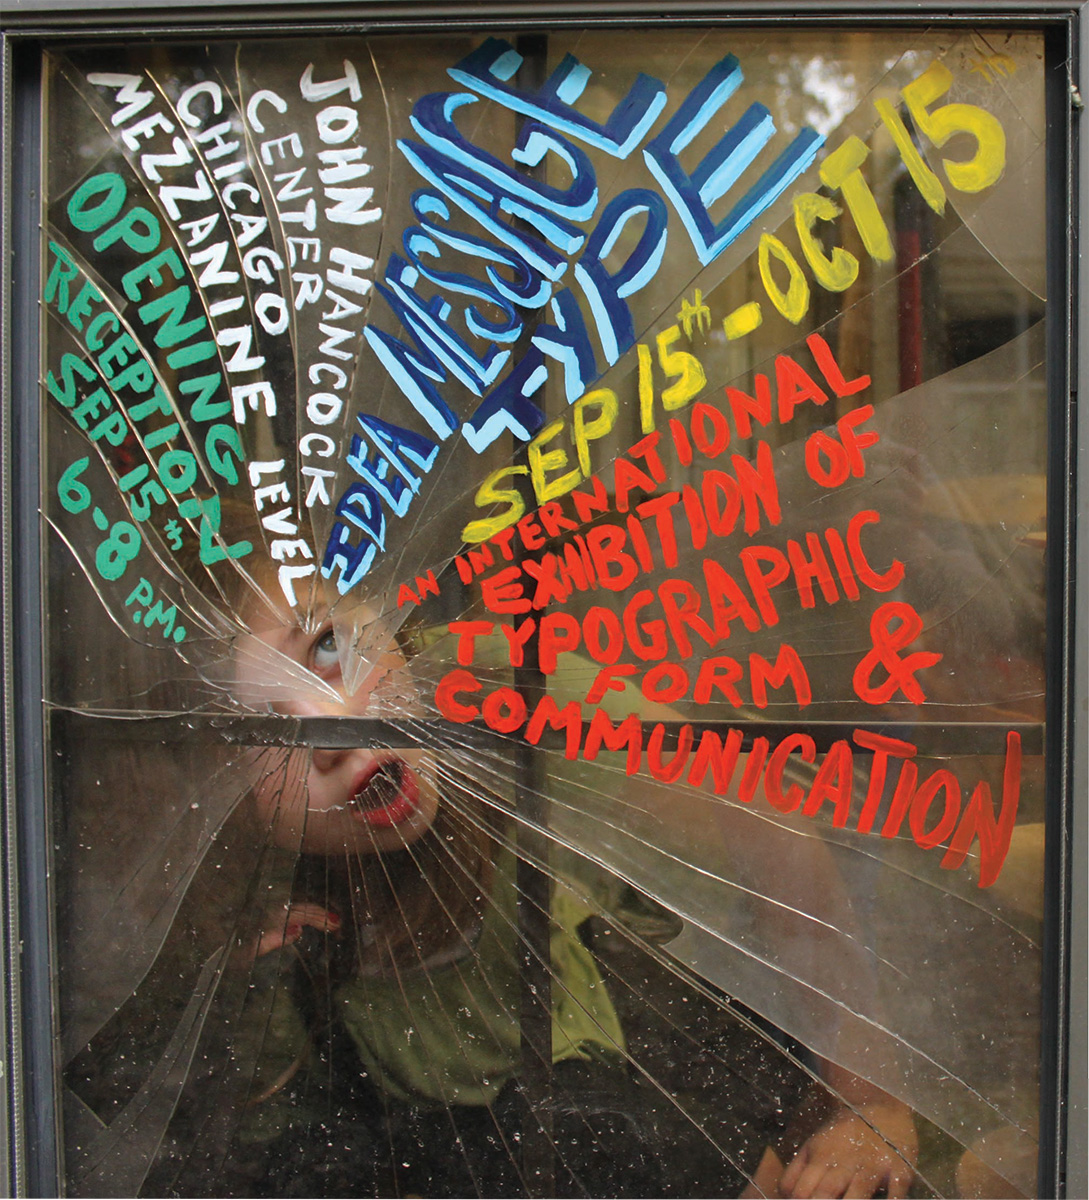 IDEA MESSAGE
TYPE
SEP 15th - OCT 15th
AN INTERNATIONAL
EXHIBITION OF
TYPOGRAPHIC
FORM &
COMMUNICATION
JOHN HANCOCK
CENTER
CHICAGO
MEZZANINE LEVEL
OPENING
RECEPTION
SEP 15th
6-8 P.M.